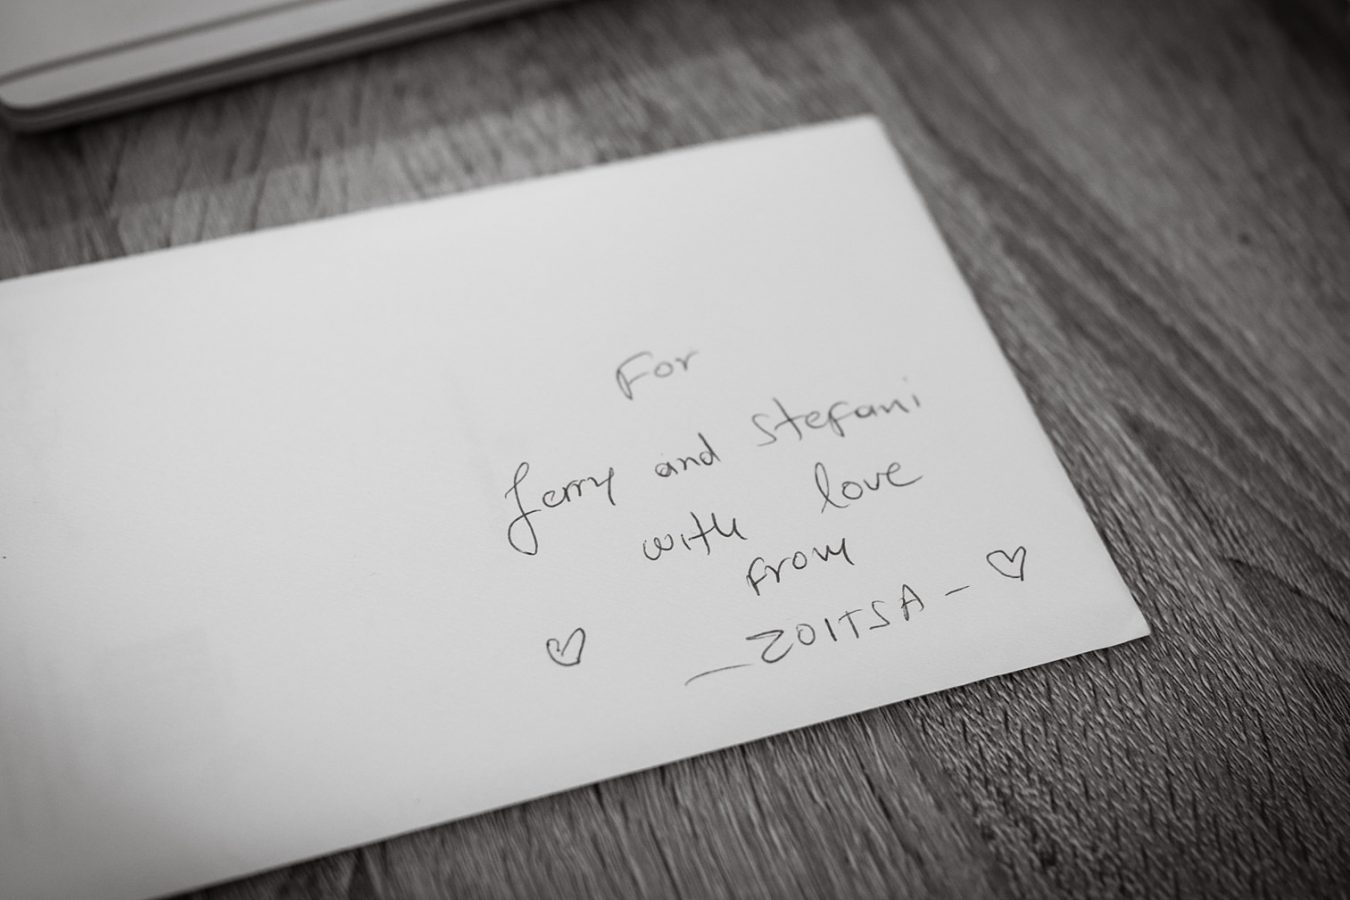 For
Jerry and Stefani
with love
from
— ZOITSA — ♡
♡